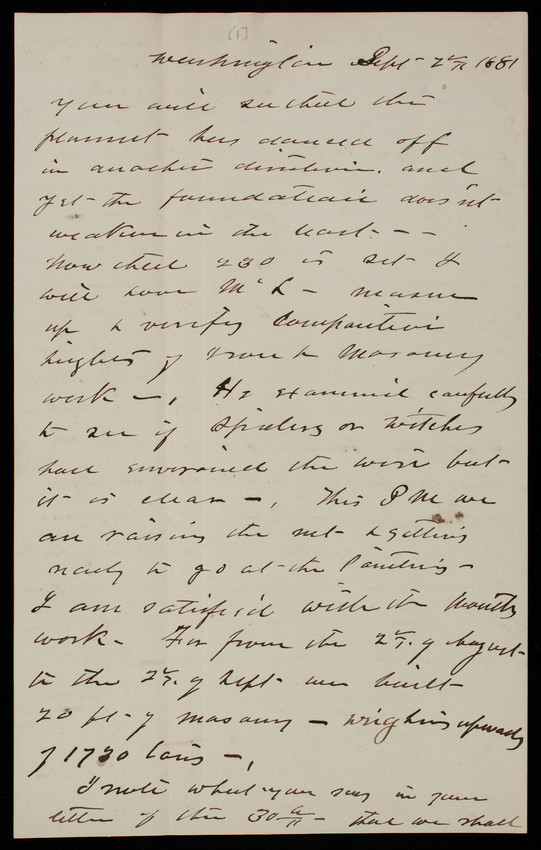 [1]
Washington Sept 2nd 1881
You will see that the
plummet has danced off
in another direction. and
yet the foundation does'nt
weaken in the least --
Now that 230 is set I
will have Mc L- measure
up & verify comparative
hights of Iron & Masonry
work -, He examined carefully
to see if Spiders or witches
had environed the wire but
it is clear -, This P M we
are raising the net & getting
ready to go at the Painting -
I am satisfied with the Months
work - For from the 2nd. of August
to the 2nd. of Sept we built
20 ft of masonry - weighing upwards
of 1730 tons -,
I note what you say in your
letter of the 30 - that we shall